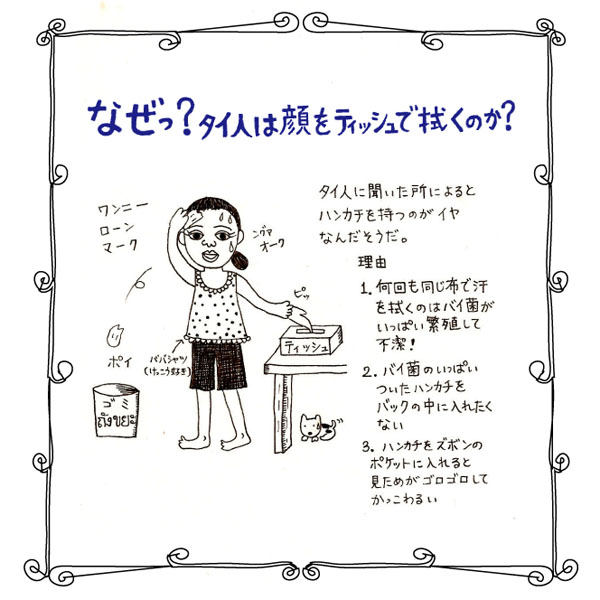 なぜっ?タイ人は顔をティッシュで拭くのか?
タイ人に聞いた所によると
ハンカチを持つのがイヤ
なんだそうだ。
理由
1. 何回も同じ布で汗
を拭くのはバイ菌が
いっぱい繁殖して
不潔!
2. バイ菌のいっぱい
ついたハンカチを
バックの中に入れたく
ない
3. ハンカチをズボンの
ポケットに入れると
見ためがゴロゴロして
かっこわるい
ワンニー
ローン
マーク
ンヴァ
オーク
ピッ
ティッシュ
ポイ
ババシャツ
(けっこうすき)
ゴミ
ถังขยะ